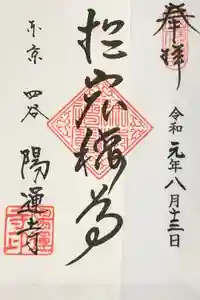 奉拝
令和元年八月十三日
於岩稲荷
東京 四谷
陽運寺